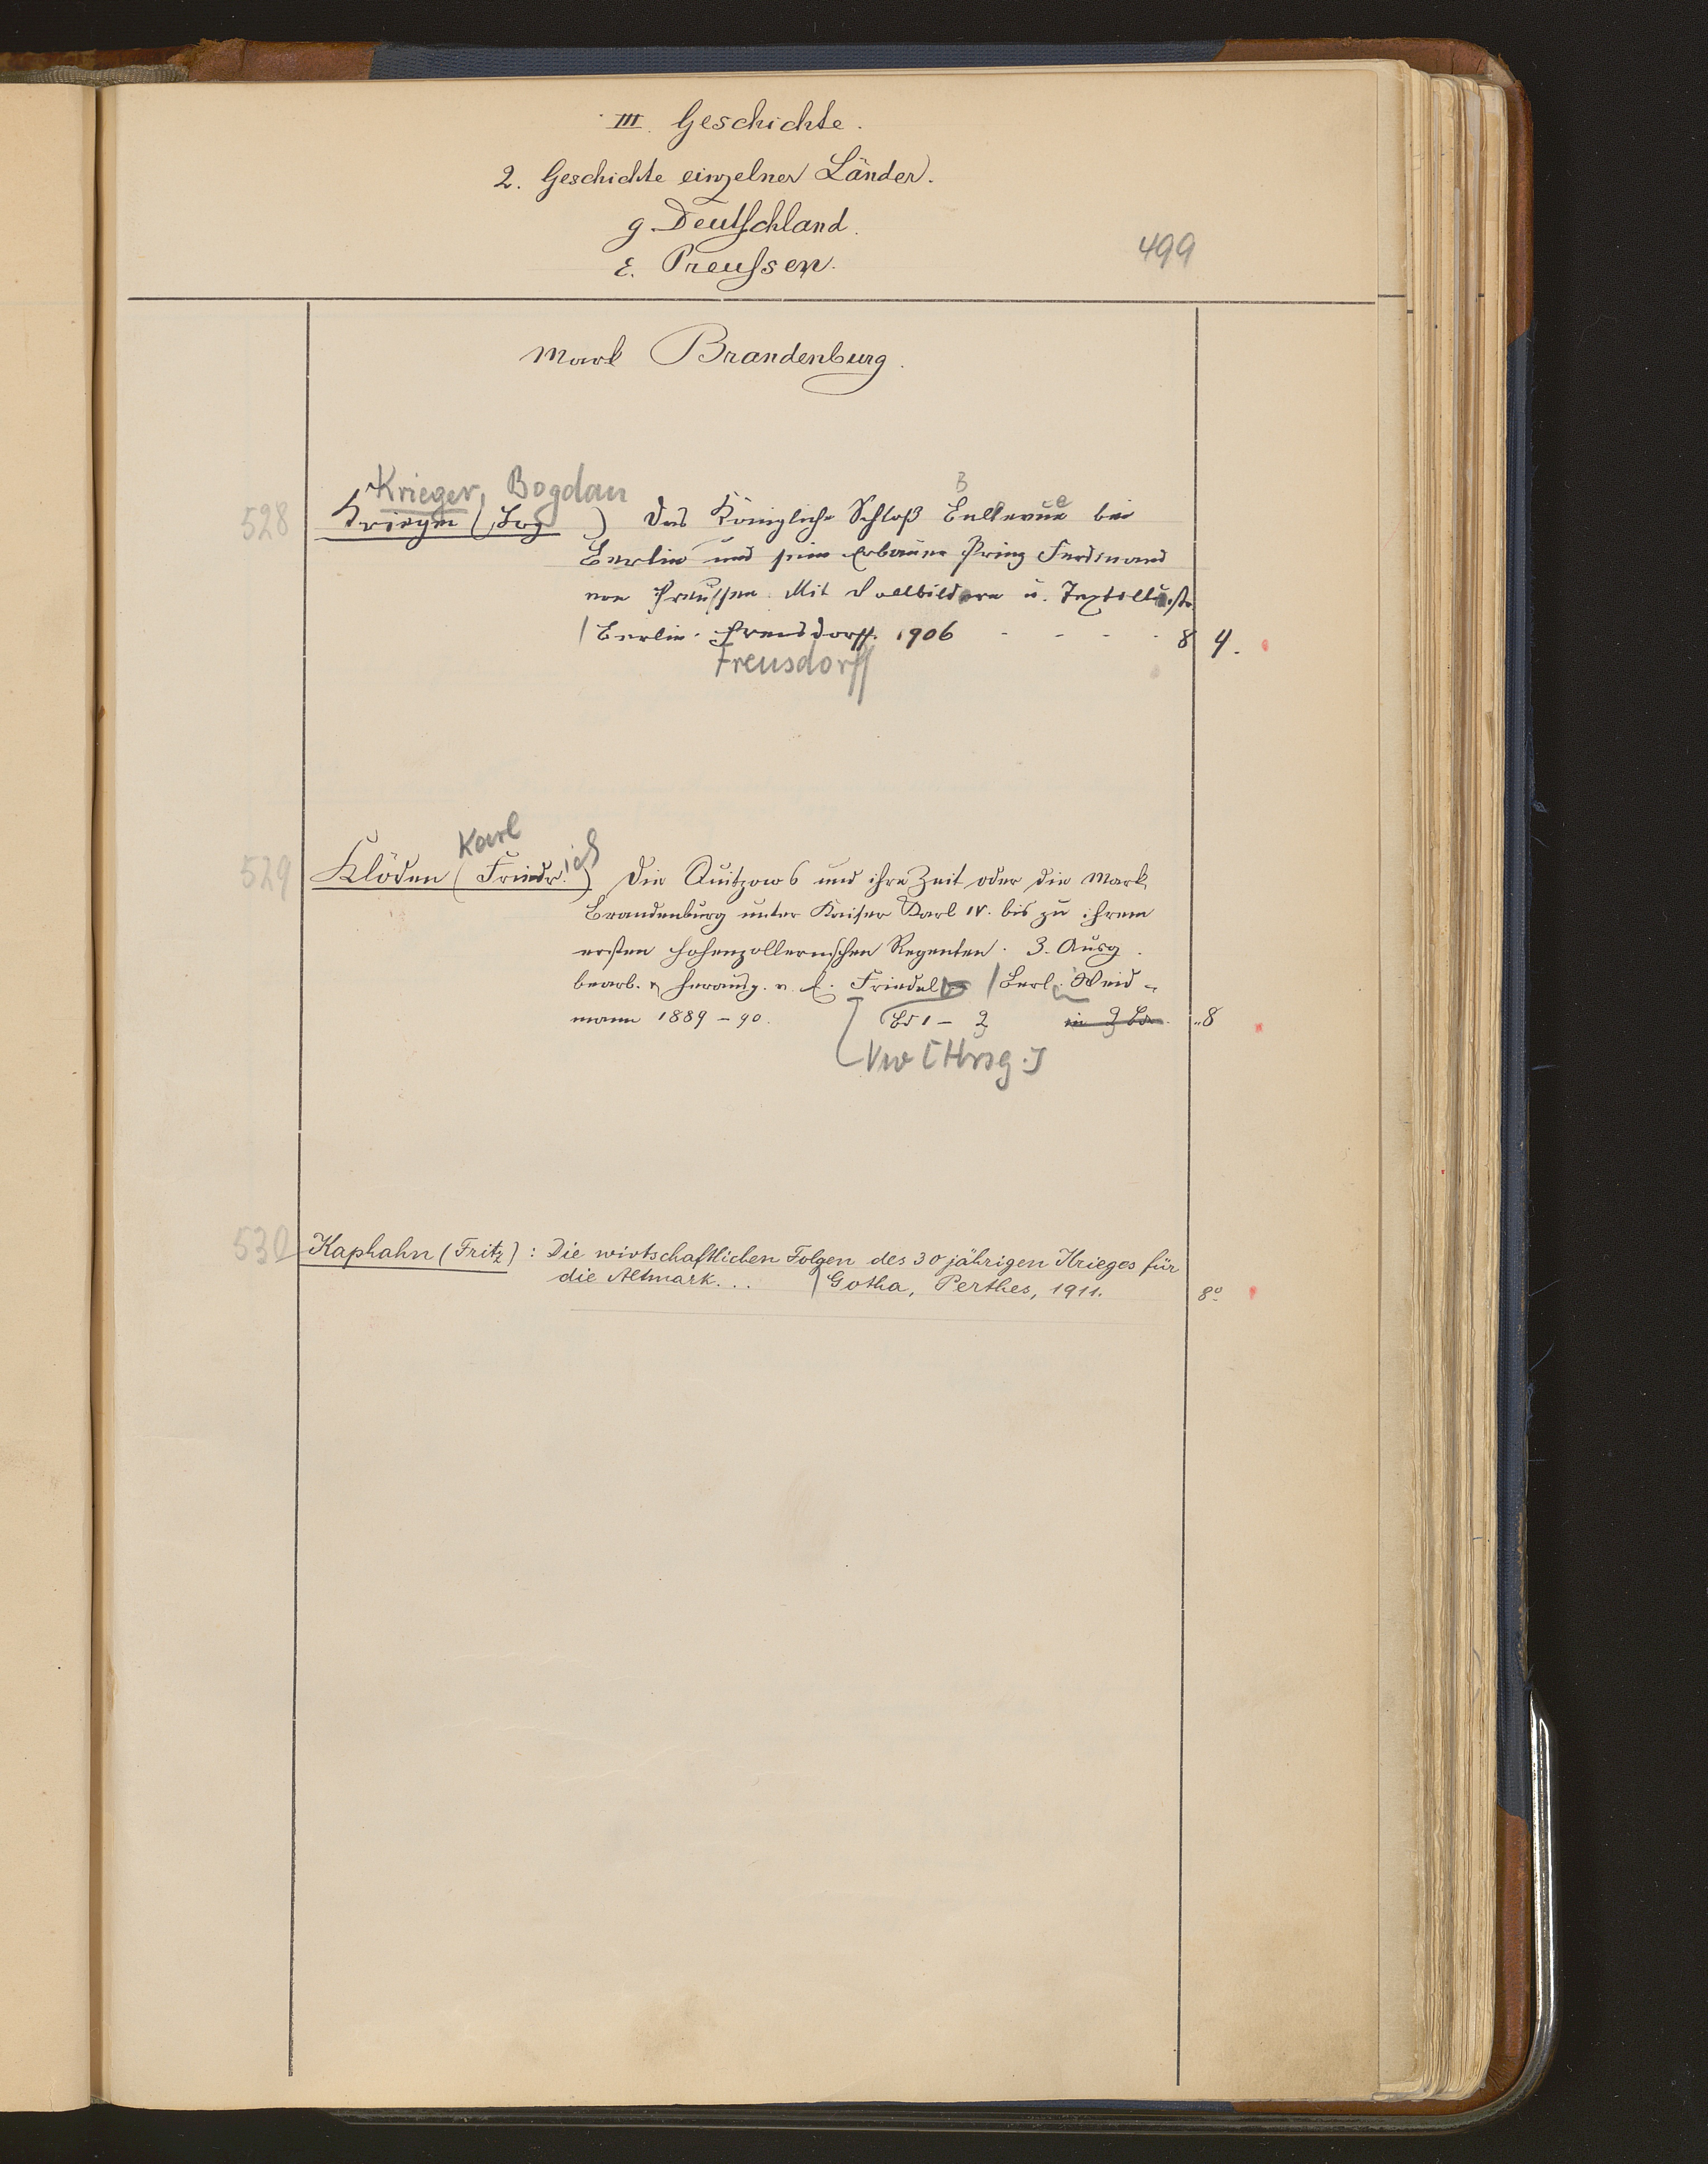 III. Geschichte.
2. Geschichte einzelner Länder.
g. Deutschland.
ε. Preußen.
499
Mark Brandenburg.
Krieger, Bogdan B e
528 Krieger (Bog ) Das Königliche Schloß Bellevue bei
Berlin und sein Erbauer Prinz Ferdinand
von Preußen. Mit Vollbildern u. Textillustr.
| Berlin. Frensdorff. 1906 - - - - 8 4.
Frensdorff
Karl
529 Klöden (Friedr.ich) Die Quitzows und ihre Zeit oder die Mark
Brandenburg unter Kaiser Karl IV. bis zu ihrem
ersten hohenzollernschen Regenten. 3. Ausg.
bearb. & herausg. v. E. Friedel | Berl. Weid-
mann 1889-90. Bd 1-2 in 2 Bdn. 8
Vw [Hrsg.]
530 Kaphahn (Fritz): Die wirtschaftlichen Folgen des 30 jährigen Krieges für
die Altmark... | Gotha, Perthes, 1911. 8°